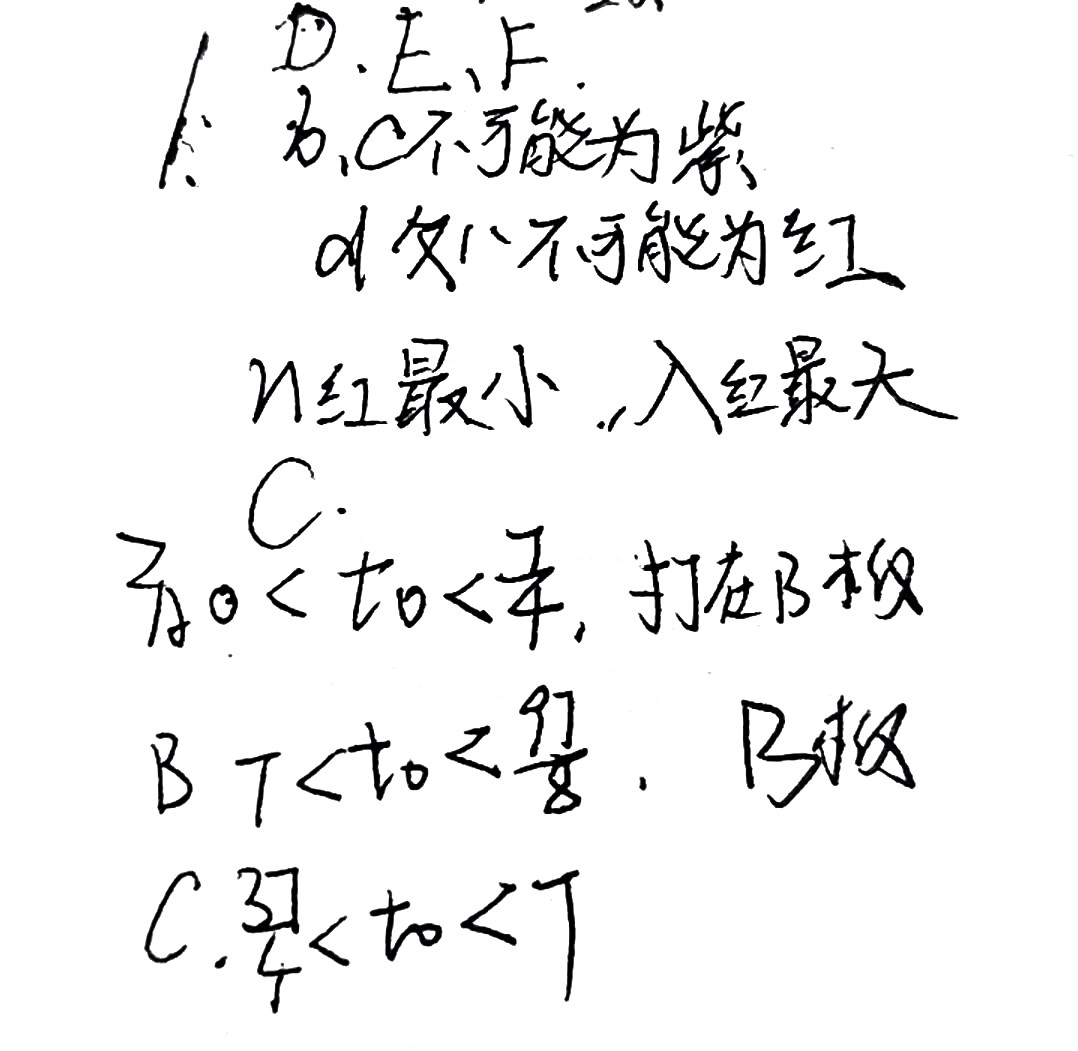 D、E、F.
1. b、C不可能为紫、
d处、不可能为红
n红最小,λ红最大
C.
A 0 < t₀ < T/4, 打在B极
B T < t₀ < 9T/8. B极
C. 3T/4 < t₀ < T